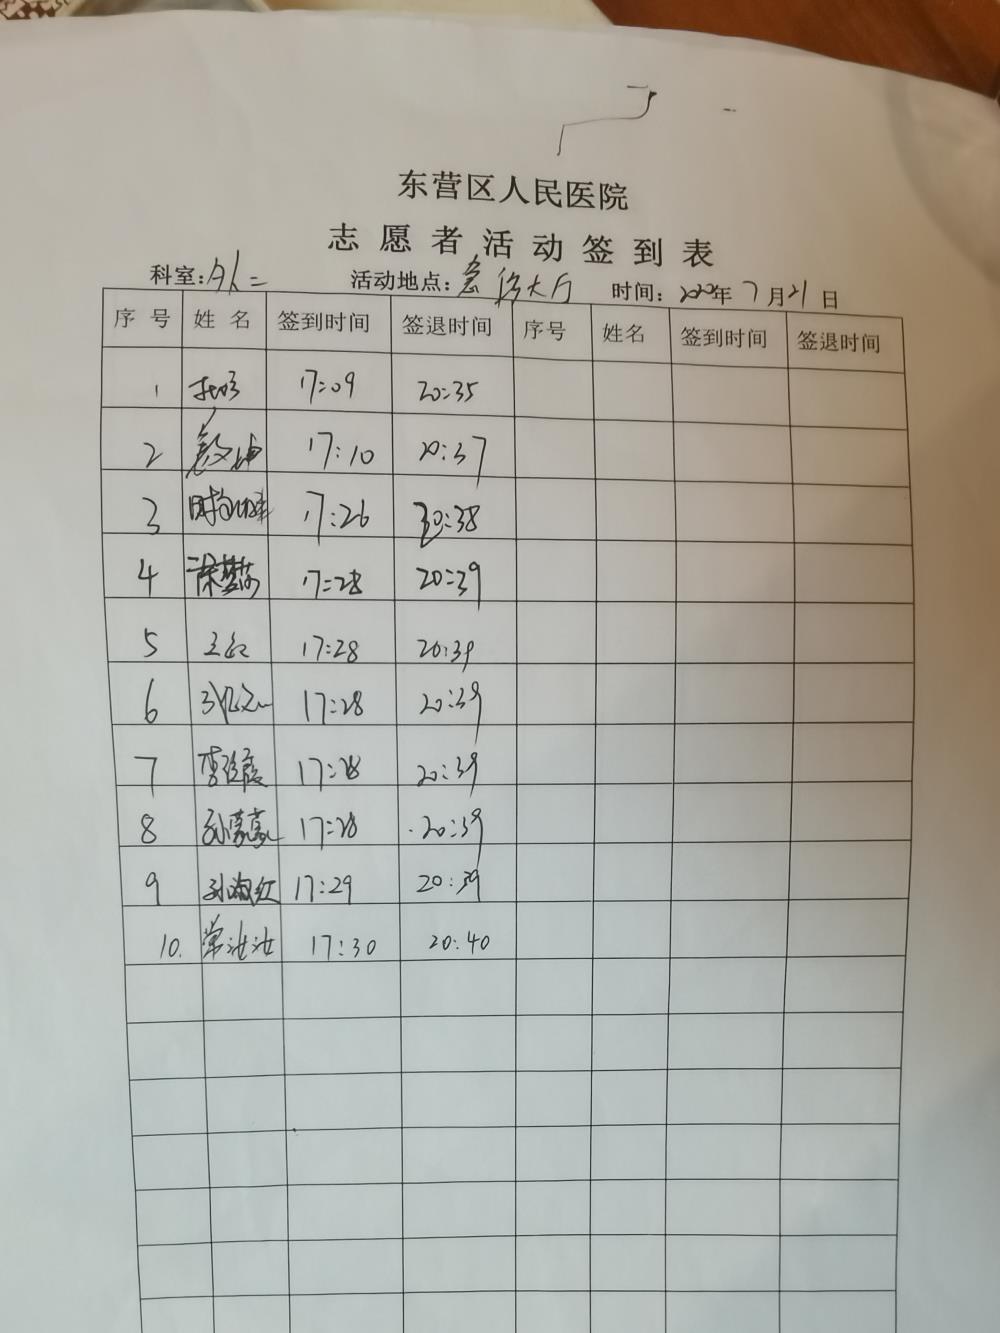 东营区人民医院
志愿者活动签到表
科室:外二 活动地点:急诊大厅 时间:2020年7月21日
序号 姓名 签到时间 签退时间 序号 姓名 签到时间 签退时间
1 17:09 20:35
2 17:10 20:37
3 17:26 20:38
4 17:28 20:39
5 17:28 20:39
6 17:28 20:39
7 17:28 20:39
8 17:28 20:39
9 孙海红 17:29 20:39
10. 常汝汝 17:30 20:40